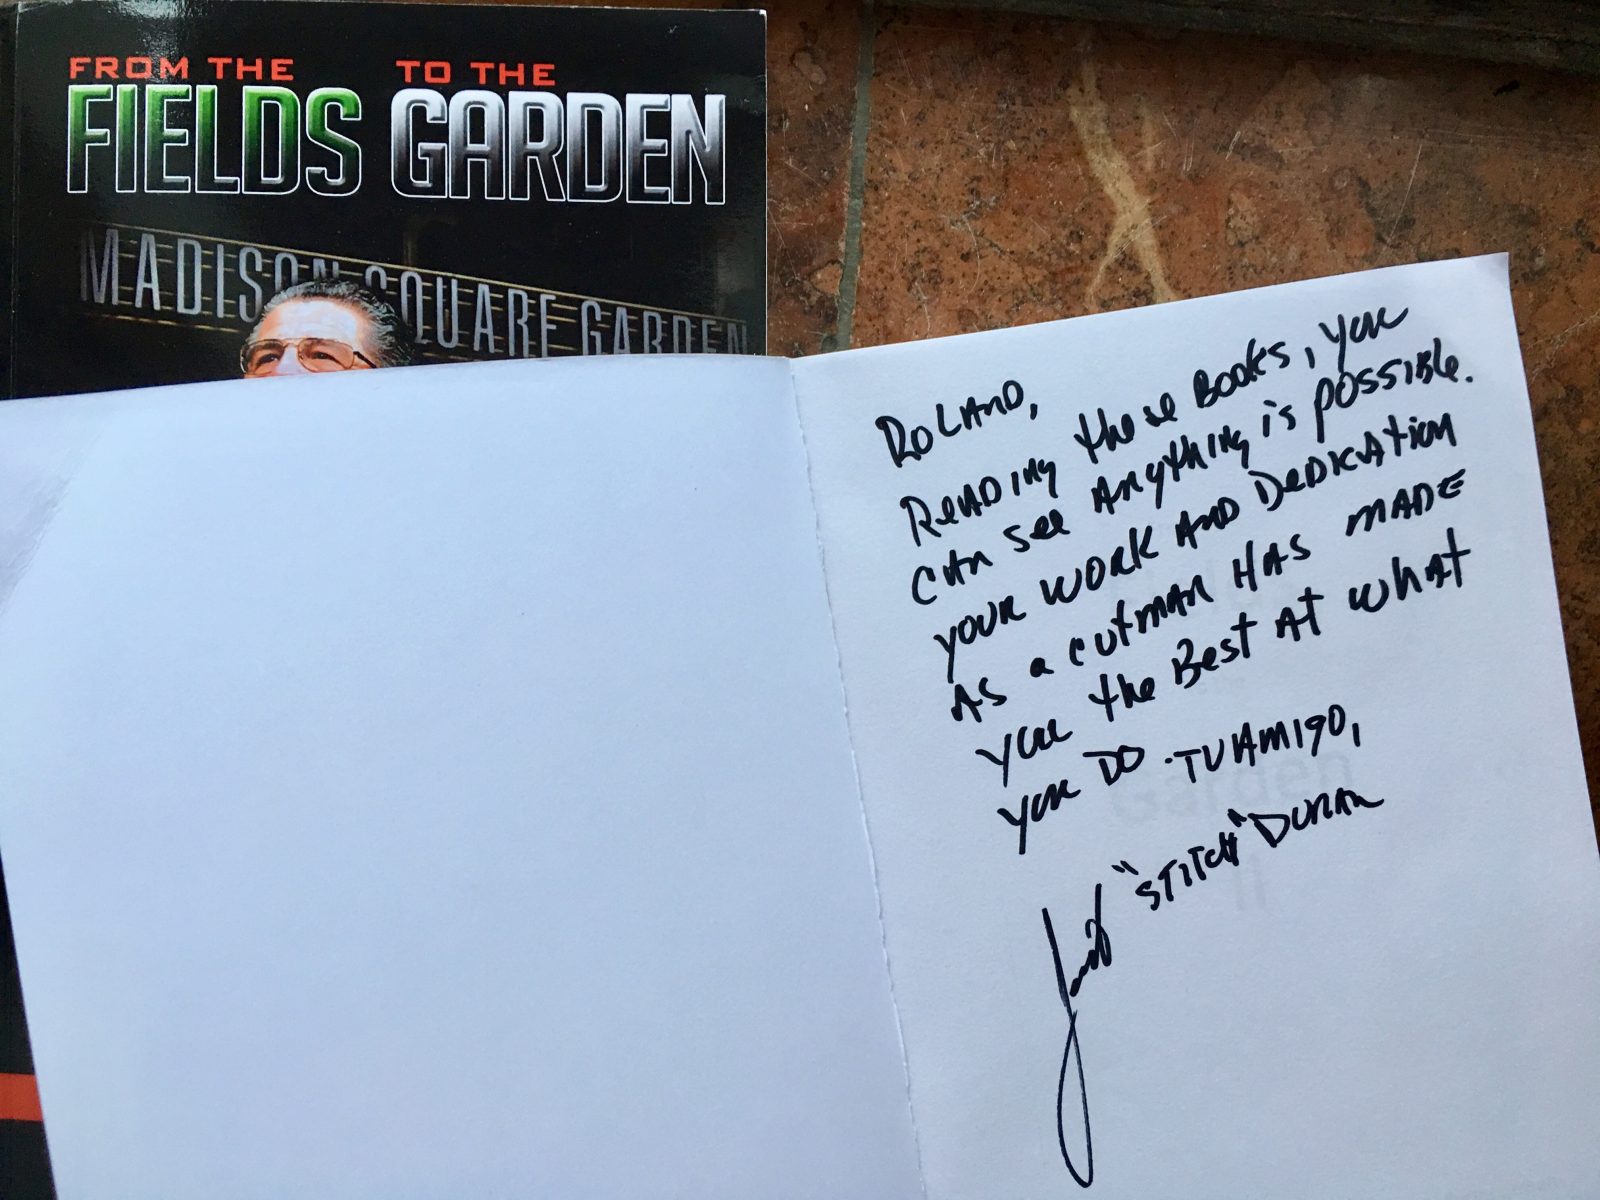 FROM THE TO THE
FIELDS GARDEN
MADISON SQUARE GARDEN
ROLAND,
READING these BOOKS, you
CAN see ANYthING is possible.
your WORK AND DEDICATION
AS a cutman HAS MADE
you the Best At what
you DO. TU AMIGO,
"STITCH" DURAN
Garden
II